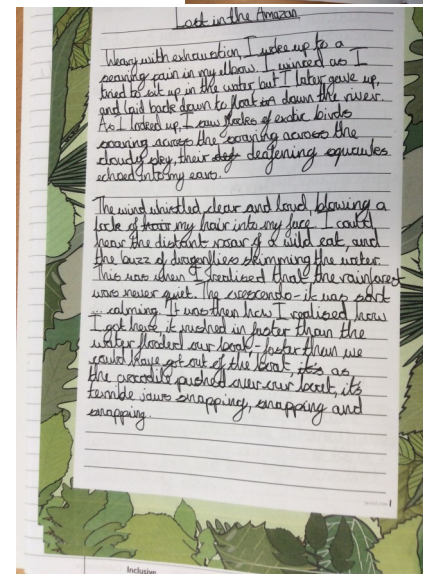 Lost in the Amazon.
Weary with exhaustion, I woke up to a
searing pain in my elbow. I winced as I
tried to sit up in the water but I later gave up,
and laid back down to float down the river.
As I looked up, I saw flocks of exotic birds
soaring across the soaring across the
cloudy sky, their deafening squawks
echoed into my ears.
The wind whistled, clear and loud, blowing a
lock of my hair into my face. I could
hear the distant roar of a wild cat, and
the buzz of dragonflies skimming the water.
This was when I realised that the rainforest
was never quiet. The crescendo - it was sort
... calming. It was then how I realised, how
I got here, it rushed in faster than the
water flooded our boat, - faster than we
could have got out of the boat, it's as
the crocodile pushed over our boat, it's
terrible jaws snapping, snapping and
snapping.
Inclusive